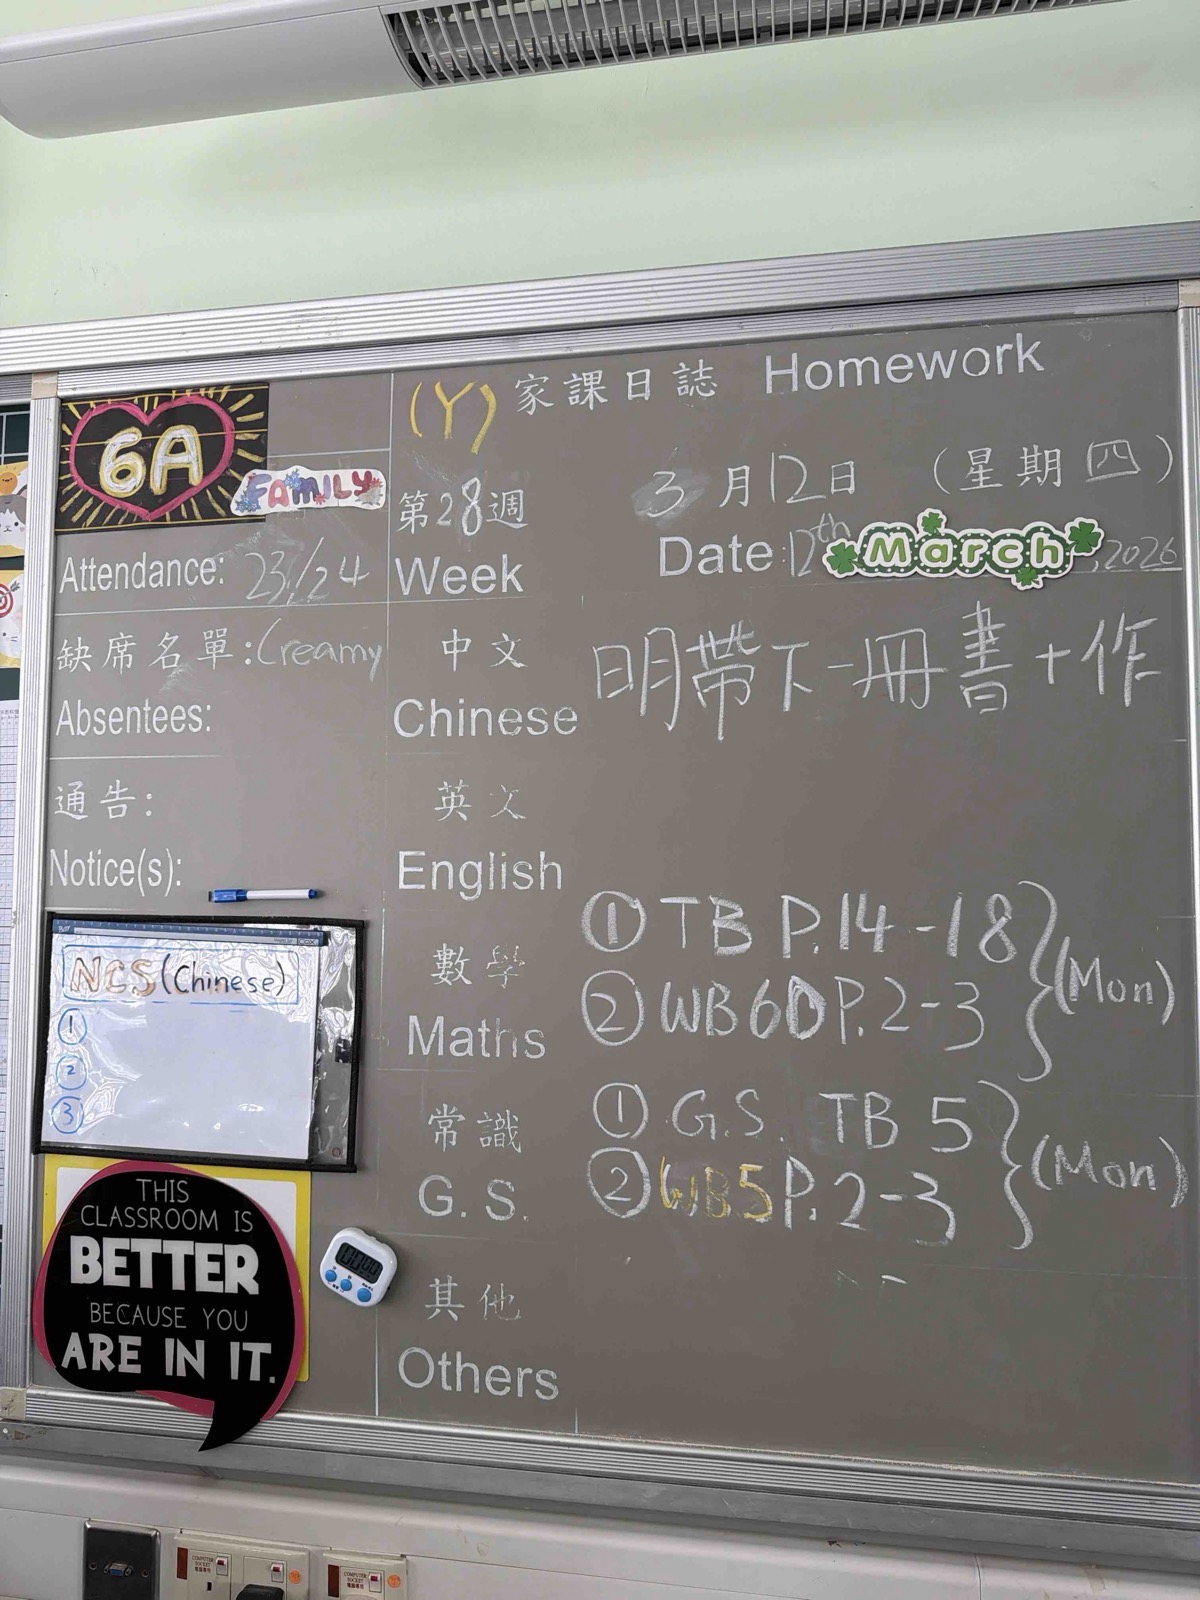 6A
FAMILY
(Y) 家課日誌 Homework
第28週 3月12日 (星期四)
Week Date: 12th March, 2026
Attendance: 23/24
缺席名單: Creamy
Absentees:
通告:
Notice(s):
NCS (Chinese)
1
2
3
THIS
CLASSROOM IS
BETTER
BECAUSE YOU
ARE IN IT.
中文
Chinese
明帶下一冊書+作
英文
English
數學
Maths
① TB P.14-18
② WB6D P.2-3
(Mon)
常識
G.S.
① G.S. TB 5
② WB5 P.2-3
(Mon)
其他
Others
COMPUTER
SOCKET
COMPUTER
SOCKET